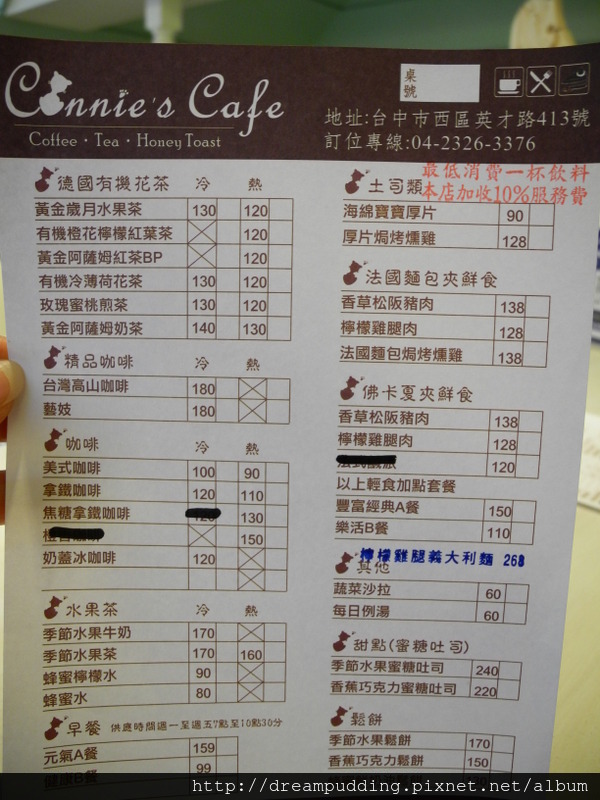 Connie's Cafe
Coffee · Tea · Honey Toast
桌號
地址:台中市西區英才路413號
訂位專線:04-2326-3376
最低消費一杯飲料
本店加收10%服務費
德國有機花茶 冷 熱
黃金歲月水果茶 130 120
有機橙花檸檬紅葉茶 120
黃金阿薩姆紅茶BP 120
有機冷薄荷花茶 130 120
玫瑰蜜桃煎茶 130 120
黃金阿薩姆奶茶 140 130
精品咖啡 冷 熱
台灣高山咖啡 180
藝妓 180
咖啡 冷 熱
美式咖啡 100 90
拿鐵咖啡 120 110
焦糖拿鐵咖啡 130
150
奶蓋冰咖啡 120
水果茶 冷 熱
季節水果牛奶 170
季節水果茶 170 160
蜂蜜檸檬水 90
蜂蜜水 80
早餐 供應時間週一至週五7點至10點30分
元氣A餐 159
健康B餐 99
土司類
海綿寶寶厚片 90
厚片焗烤燻雞 128
法國麵包夾鮮食
香草松阪豬肉 138
檸檬雞腿肉 128
法國麵包焗烤燻雞 138
佛卡夏夾鮮食
香草松阪豬肉 138
檸檬雞腿肉 128
120
以上輕食加點套餐
豐富經典A餐 150
樂活B餐 110
檸檬雞腿義大利麵 268
其他
蔬菜沙拉 60
每日例湯 60
甜點(蜜糖吐司)
季節水果蜜糖吐司 240
香蕉巧克力蜜糖吐司 220
鬆餅
季節水果鬆餅 170
香蕉巧克力鬆餅 150
http://dreampudding.pixnet.net/album